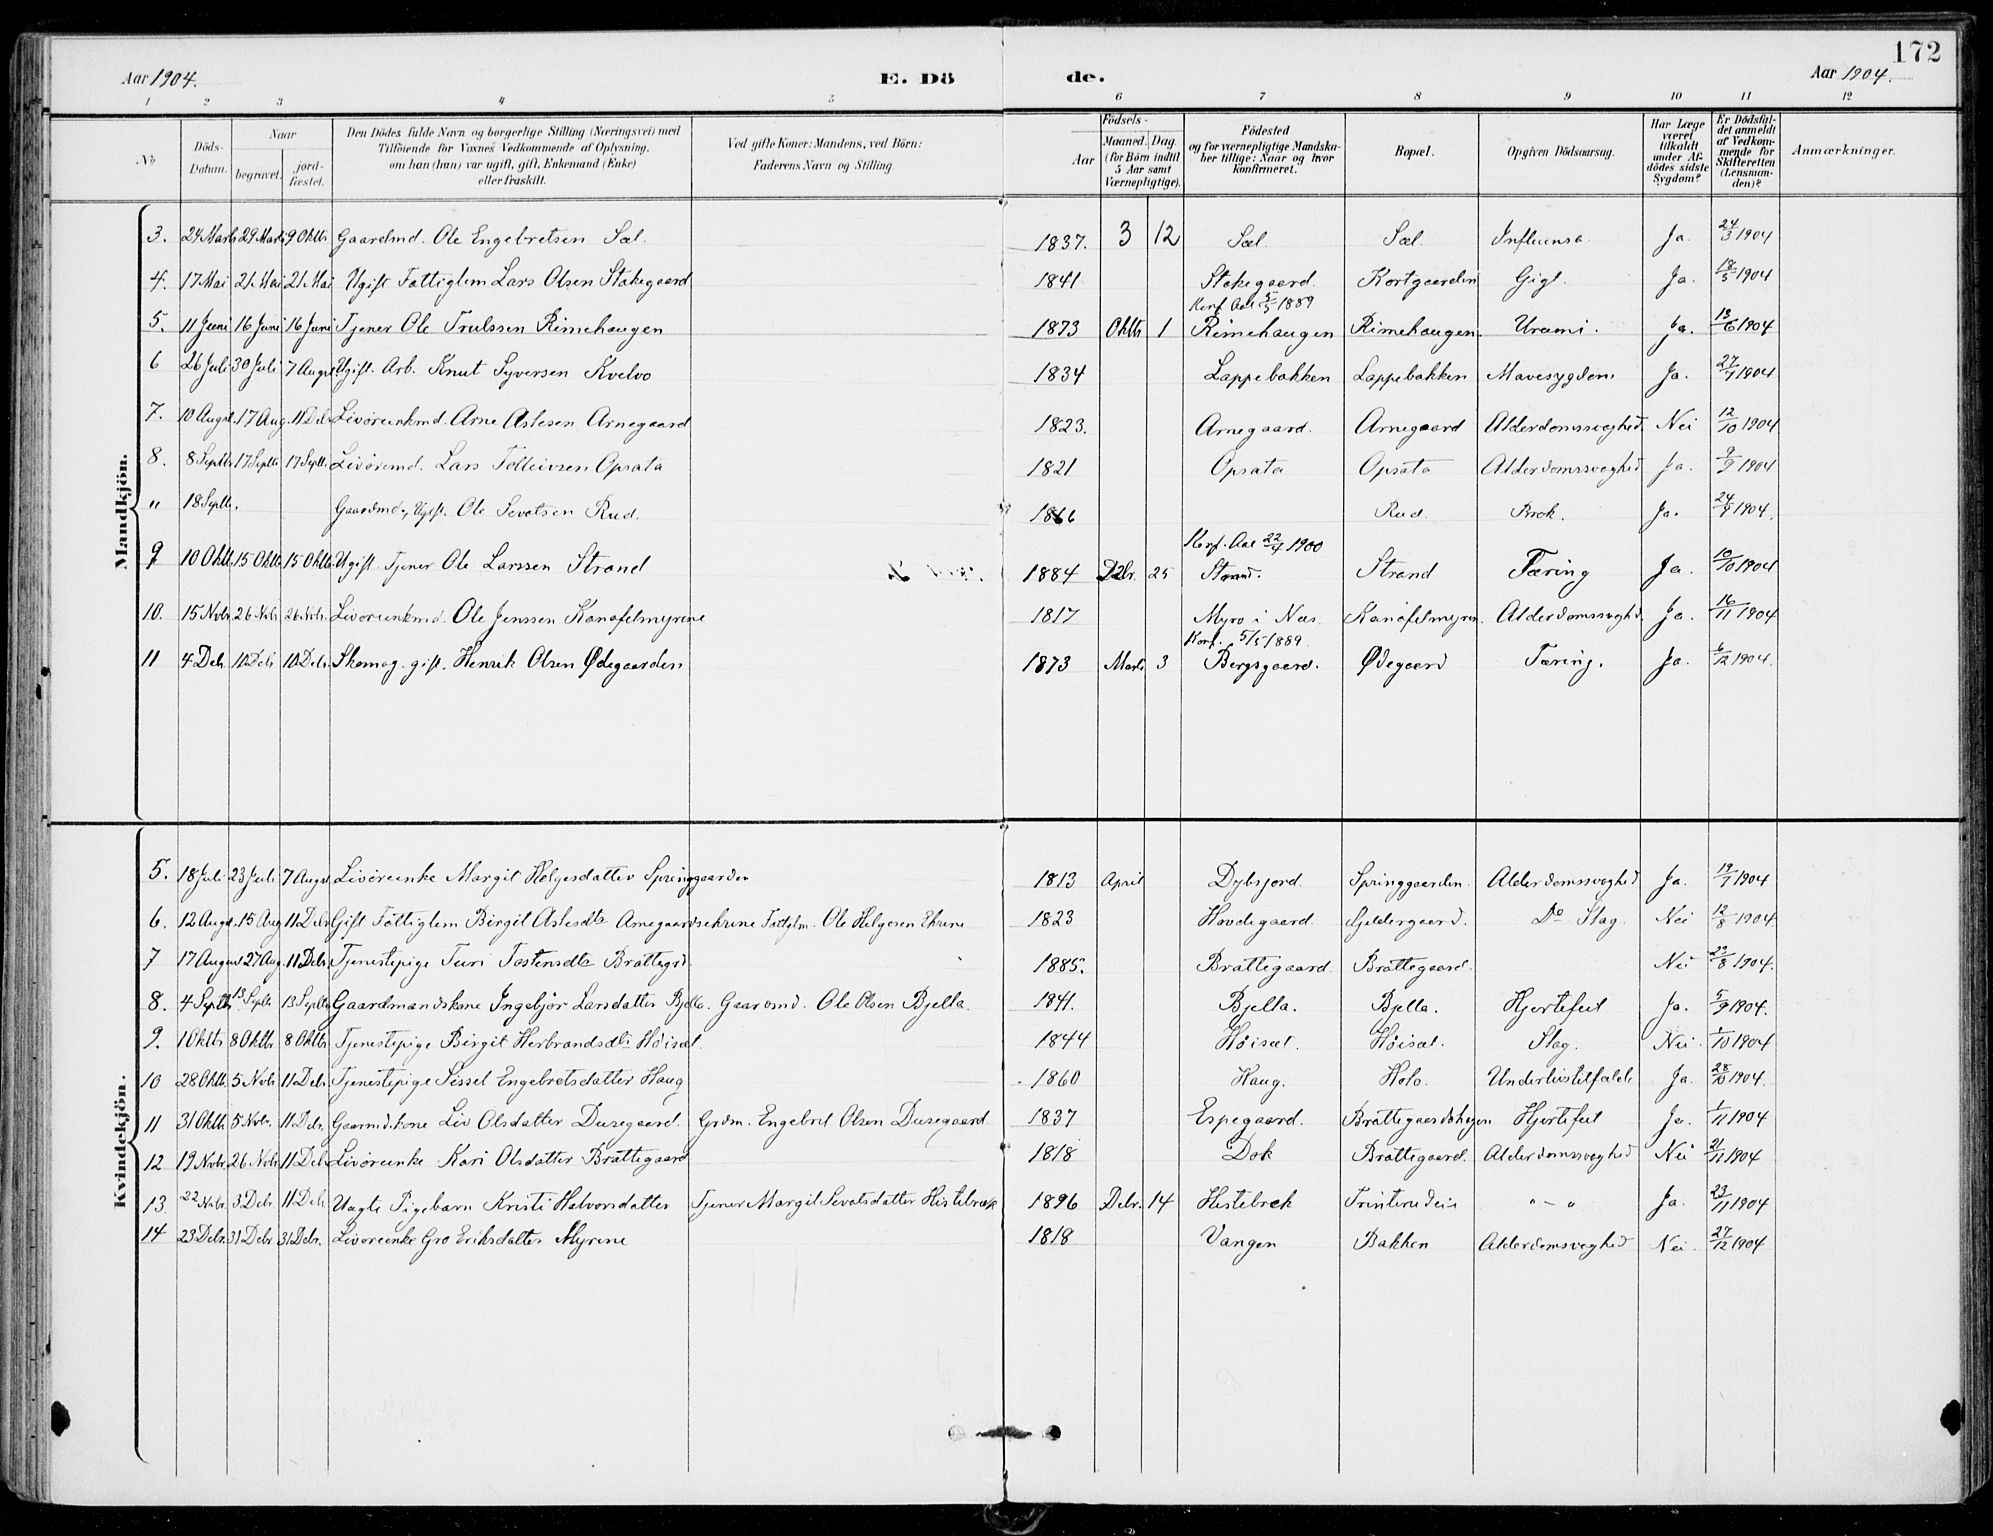 172
Aar 1904. E. Dö de. Aar 1904.
1 2 3 4 5 6 7 8 9 10 11 12
No
Döds-Datum.
Naar
begravet. jord-fæstet.
Den Dödes fulde Navn og borgerlige Stilling (Næringsvei) med
Tilföiende for Voxnes Vedkommende af Oplysning,
om han (hun) var ugift, gift, Enkemand (Enke)
eller fraskilt.
Ved gifte Koner: Mandens, ved Börn:
Faderens Navn og Stilling.
Födsels-
Aar Maaned. Dag.
(for Börn indtil
5 Aar samt
Værnepligtige).
Födested
og for værnepligtige Mandska-
ber tillige: Naar og hvor
konfirmeret.
Bopæl.
Opgiven Dödsaarsag.
Har Læge
været
tilkaldt
under Af-
dödes sidste
Sygdom?
Er Dödsfal-
det anmeldt
af Vedkom-
mende for
Skifteretten
(Lensman-
den)?
Anmærkninger.
Mandkjön.
3. 24 Marts 29 Marts 9 Oktb Gaardmd. Ole Engebretsen Sæl. 1837. 3 12 Sæl. Sæl. Influensa Ja. 24/3 1904
4. 17 Mai 21 Mai 21 Mai Ugift Fattiglem Lars Olsen Stakegaard 1841 Stakegaard. Kortgaarden Gigt. Ja. 18/5 1904
Konf. Aal 5/5 1889
5. 11 Juni 16 Juni 16 Juni Tjener Ole Trulssen Rimehaugen 1873 Oktb 1 Rimehaugen Rimehaugen. Urami. Ja. 13/6 1904
6 26 Juli 30 Juli 7 August Ugift. Arb. Knut Syversen Kvelvo 1834 Lappebakken Lappebakken Mavesygdom Ja. 27/7 1904
7. 10 Augst. 17 Aug. 11 Deb Livöreenkmd. Arne Astesen Arnegaard 1823. Arnegaard. Arnegaard Alderdomssvaghed Nei 12/10 1904
8. 8 Septb 17 Septb 17 Septb Livöremd. Lars Tolleivsen Opsata 1821 Opsata Opsata Alderdomssvaghed Ja. 9/9 1904
" 18 Septb. Gaardmd, Ugift. Ole Sevatsen Rud. 1866 Rud. Brok. Ja. 24/9 1904.
Konf. Aal 22/4 1900
9 10 Oktb. 15 Oktb 15 Oktb Ugift Tjener Ole Larssen Strand 1884 Debr. 25 Strand. Strand Tæring Ja. 10/10 1904
10. 15 Novb. 26 Novb 26 Novb. Livöreenkmd. Ole Jenssen Kanafelmyrene 1817 Myro i Næs. Kanafelmyren. Alderdomssvaghed Ja. 16/11 1904
Konf. 5/5 1889.
11 4 Deb. 10 Deb 10 Deb. Skomag. gift. Henrik Olsen Ødegaarden 1873 Marts 3 Bergsgaard. Ødegaard Tæring. Ja. 6/12 1904.
Kvindekjön.
5. 18 Juli 23 Juli 7 Augst Livöreenke Margit Helgesdatter Springgaarden 1813 April Dybsjord. Springgaarden. Alderdomssvaghed Ja. 19/7 1904
6. 12 Augst. 15 Aug 11 Deb Gift Fattiglem Birgit Astesdtr Arnegaardsekrene Fattglm. Ole Helgesen Ekrene 1823 Hovdegaard. Gjeldergaard. Do Slag. Nei 12/8 1904
7 17 August 27 Aug. 11 Deb. Tjenestepige Turi Tostensdtr Brattegrd. 1885. Brattegaard. Brattegaard. Nei 22/8 1904.
8. 4 Septb 13 Septb 13 Septb Gaardmandskone Ingebjör Larsdatter Bjella. Gaardmd. Ole Olsen Bjella. 1841. Bjella. Bjella. Hjertefeil Ja. 5/9 1904.
9. 1 Oktb 8 Oktb 8 Oktb Tjenestepige Birgit Herbrandsdtr Höisæt. 1844 Höisæt. Höisæt. Slag. Nei. 1/10 1904
10 28 Oktb. 5 Novb 11 Deb. Tjenestepige Sissel Engebretsdatter Haug 1860 Haug. Holo. Underlivstilfælde Ja. 28/10 1904.
11 31 Oktb. 5 Novb. 11 Deb. Gaarmdkone Liv Olsdatter Dusegaard. Grdm. Engebret Olsen Dusegaard 1837 Espegaard. Brattegaardshagen Hjertefeil Ja. 1/11 1904
12 19 Novb. 26 Novb 11 Deb Livöreenke Kari Olsdatter Brattegaard 1818 Dok Brattegaard. Alderdomssvaghed Nei 21/11 1904
13. 22 Novb. 3 Deb 11 Deb Uægte Pigebarn Kristi Halvorsdatter Tjener Margit Sevatsdatter Hestebræk 1896 Debr. 14 Hestebrek Trinterudeie " - " Ja. 23/11 1904
14 23 Deb. 31 Deb 31 Deb. Livöreenke Gro Eriksdatter Myrene 1818 Vangen Bakken Alderdomssvaghed Nei. 27/12 1904